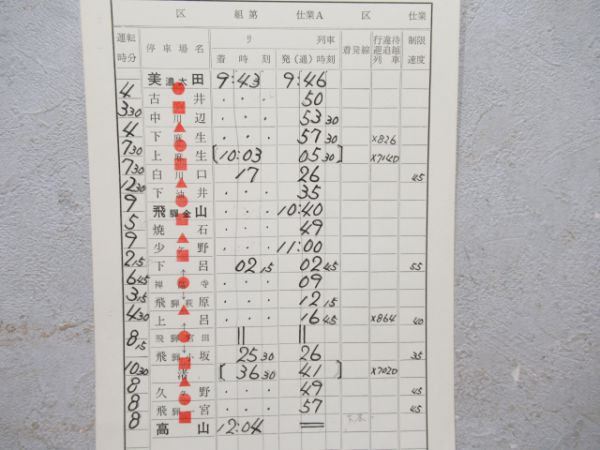 区 組第 仕業A 区 仕業
運転時分 停車場名 リ 着時刻 列車 発(通)時刻 着発線 行違待避追越列車 制限速度
美濃太田 9:43 9:46
4 古井 ・・・ 50
3 30 中川辺 ・・・ 53 30
4 下麻生 ・・・ 57 30 ×826
7 30 上麻生 [10:03 05 30] ×7140
7 30 白川口 17 26 45
12 30 下油井 ・・・ 35
9 飛騨金山 ・・・ 10:40
5 焼石 ・・・ 49
9 少ヶ野 ・・・ 11:00
2 15 下呂 02 15 02 45 55
6 45 禅昌寺 ・・・ 09
3 15 飛騨萩原 ・・・ 12 15
4 30 上呂 ・・・ 16 45 ×864 40
飛騨宮田 || ||
8 15 飛騨小坂 25 30 26 35
10 30 渚 [36 30 41] ×7020
8 久々野 ・・・ 49 45
8 飛騨一宮 ・・・ 57 45
8 高山 12:04 =